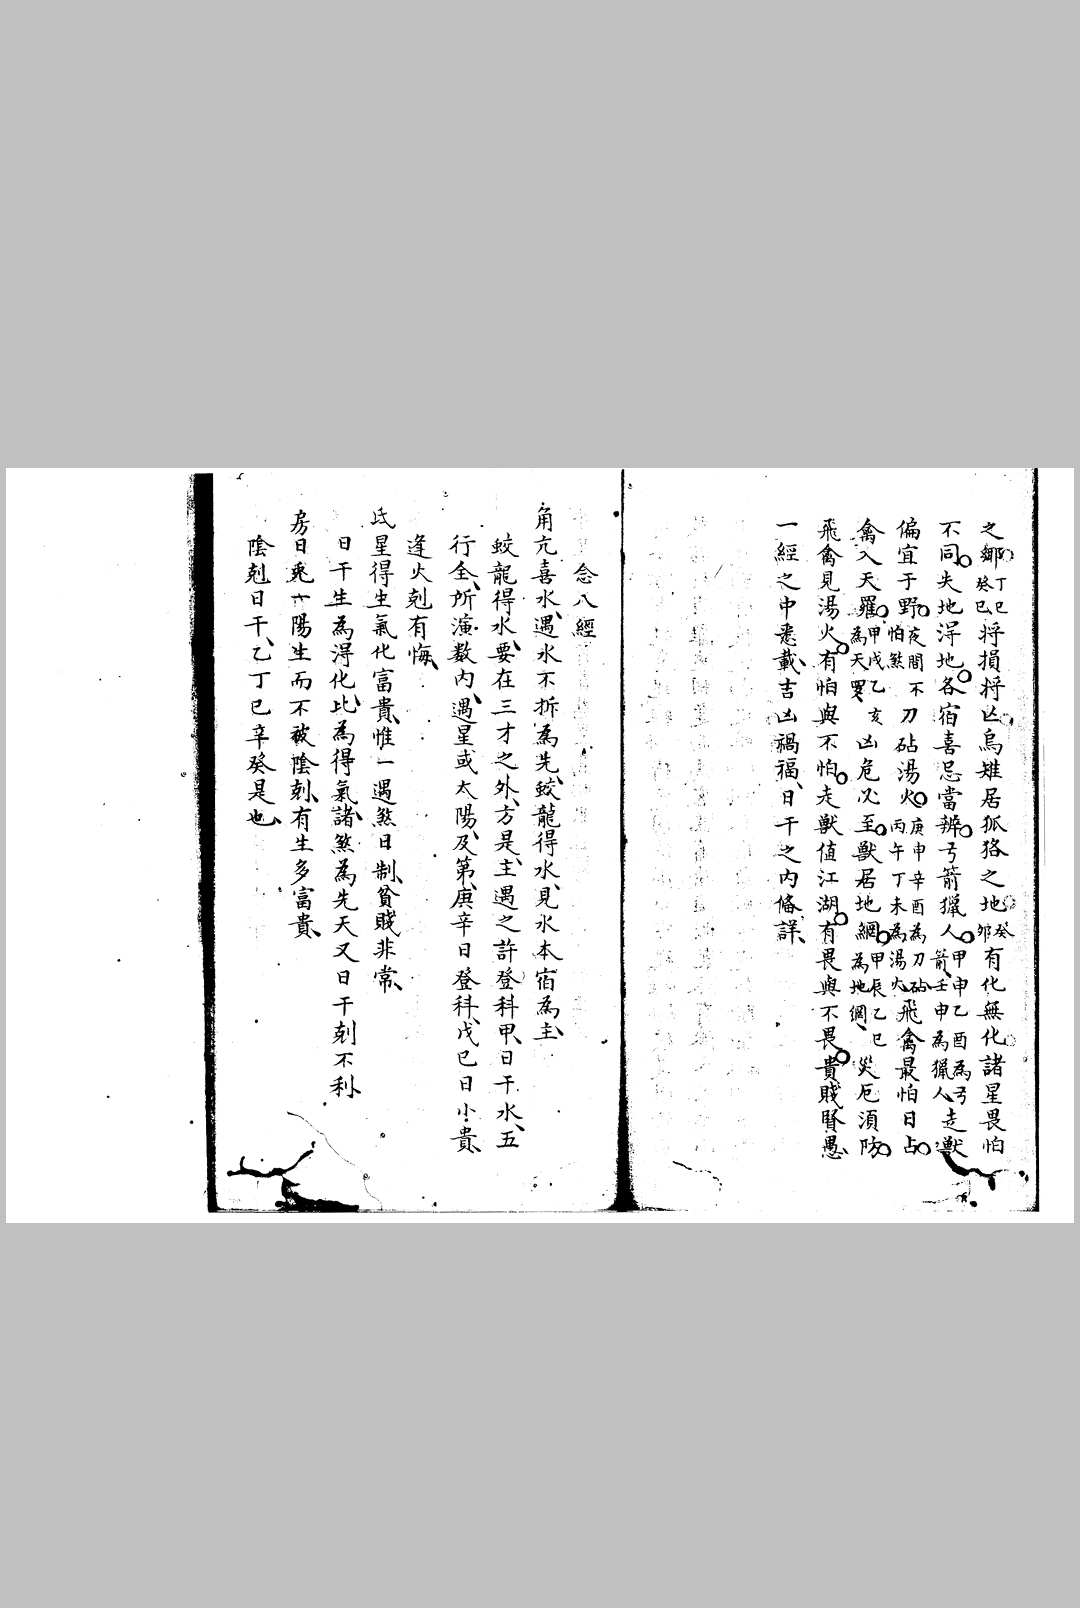 之鄉丁巳癸巳将損将凶烏雉居狐狢之地癸夘有化無化諸星畏怕
不同失地淂地各宿喜忌當辨弓箭獵人甲申乙酉為弓箭壬申為獵人走獸
偏宜于野夜間不怕煞刀砧湯火庚申辛酉為刀砧丙午丁未為湯火飛禽最怕日占
禽入天羅甲戌乙亥為天罗凶危必至獸居地網甲辰乙巳為地網災厄須防
飛禽見湯火有怕與不怕走獸值江湖有畏與不畏貴賤賢愚
一經之中悉載吉凶禍福日干之內條詳
念八經
角亢喜水遇水不拆為先蛟龍得水見水本宿為主
蛟龍得水要在三才之外方是主遇之許登科甲日干水五
行全所演数內遇星或太陽及第庚辛日登科戊巳日小貴
逢火剋有悔
氐星得生氣化富貴惟一遇煞日制貧賤非常
日干生為淂化比為得氣諸煞為先天又日干剋不利
房日兎六陽生而不被陰剋有生多富貴
陰剋日干乙丁巳辛癸是也